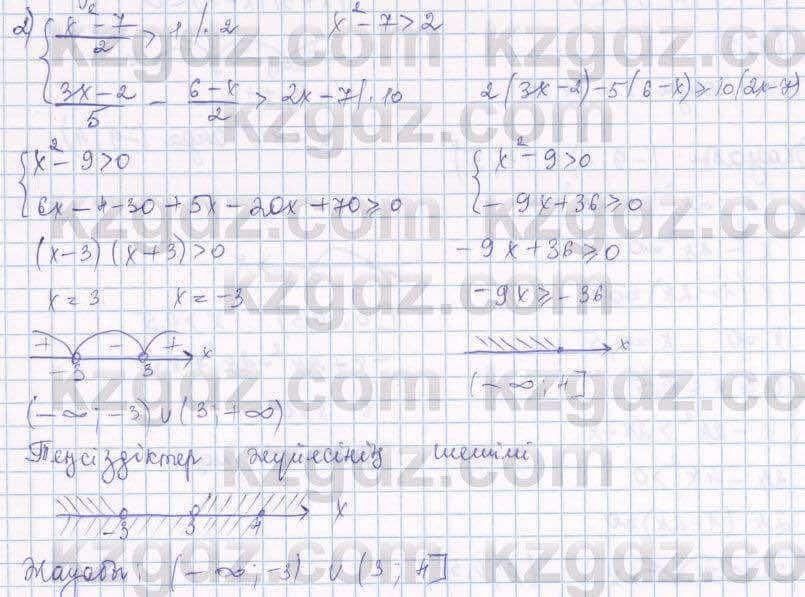 2) { (x² - 7)/2 > 1 | · 2      x² - 7 > 2
{ (3x - 2)/5 - (6 - x)/2 > 2x - 7 | · 10      2(3x - 2) - 5(6 - x) ≥ 10(2x - 7)
{ x² - 9 > 0      { x² - 9 > 0
{ 6x - 4 - 30 + 5x - 20x + 70 ≥ 0      { - 9x + 36 ≥ 0
(x - 3)(x + 3) > 0      - 9x + 36 ≥ 0
x = 3      x = -3      - 9x ≥ - 36
+ - + x      x
-3 3
(-∞; 4]
(-∞; -3) ∪ (3; +∞)
Теңсіздіктер жүйесінің шешімі
-3 3 4 x
Жауабы: (-∞; -3) ∪ (3; 4]
kzgdz.com